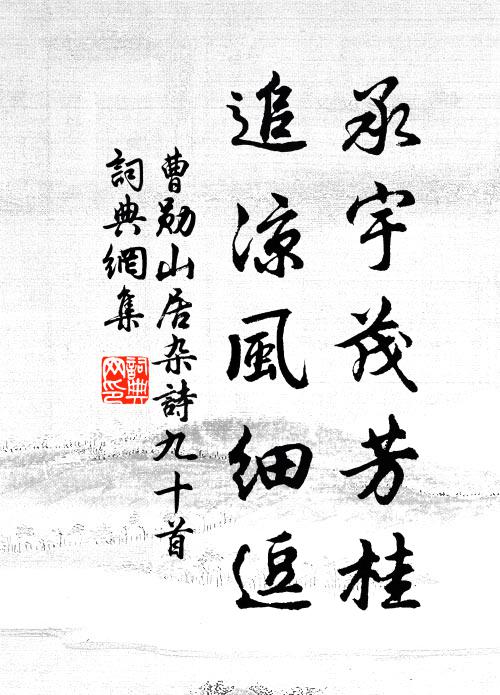 承宇茂芳桂
追凉風细逗
曹勋山居杂詩九十首
詞典網集
詞典網印